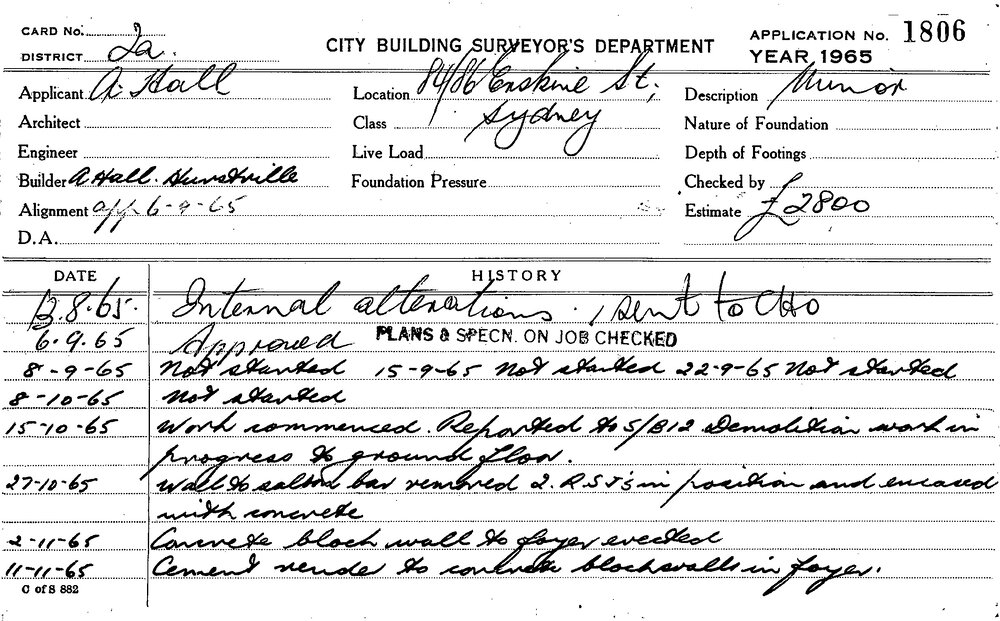 CARD No. 2a. CITY BUILDING SURVEYOR'S DEPARTMENT APPLICATION No. 1806
DISTRICT YEAR 1965
Applicant A. Hall Location 84/86 Erskine St, Description Minor
Architect Class Sydney Nature of Foundation
Engineer Live Load Depth of Footings
Builder A Hall. Hurstville Foundation Pressure Checked by
Alignment app. 6-9-65 Estimate £2800
D.A.
DATE HISTORY
13.8.65. Internal alterations. sent to CHO
6.9.65 Approved PLANS & SPECN. ON JOB CHECKED
8-9-65 Not started 15-9-65 Not started 22-9-65 Not started
8-10-65 Not started
15-10-65 Work commenced. Reported to S/B12 Demolition work in
progress to ground floor.
27-10-65 Wall to saloon bar removed 2. R.S.J's in position and encased
with concrete
2-11-65 Concrete block wall to foyer erected
11-11-65 Cement render to concrete blockwalls in foyer.
C of S 882